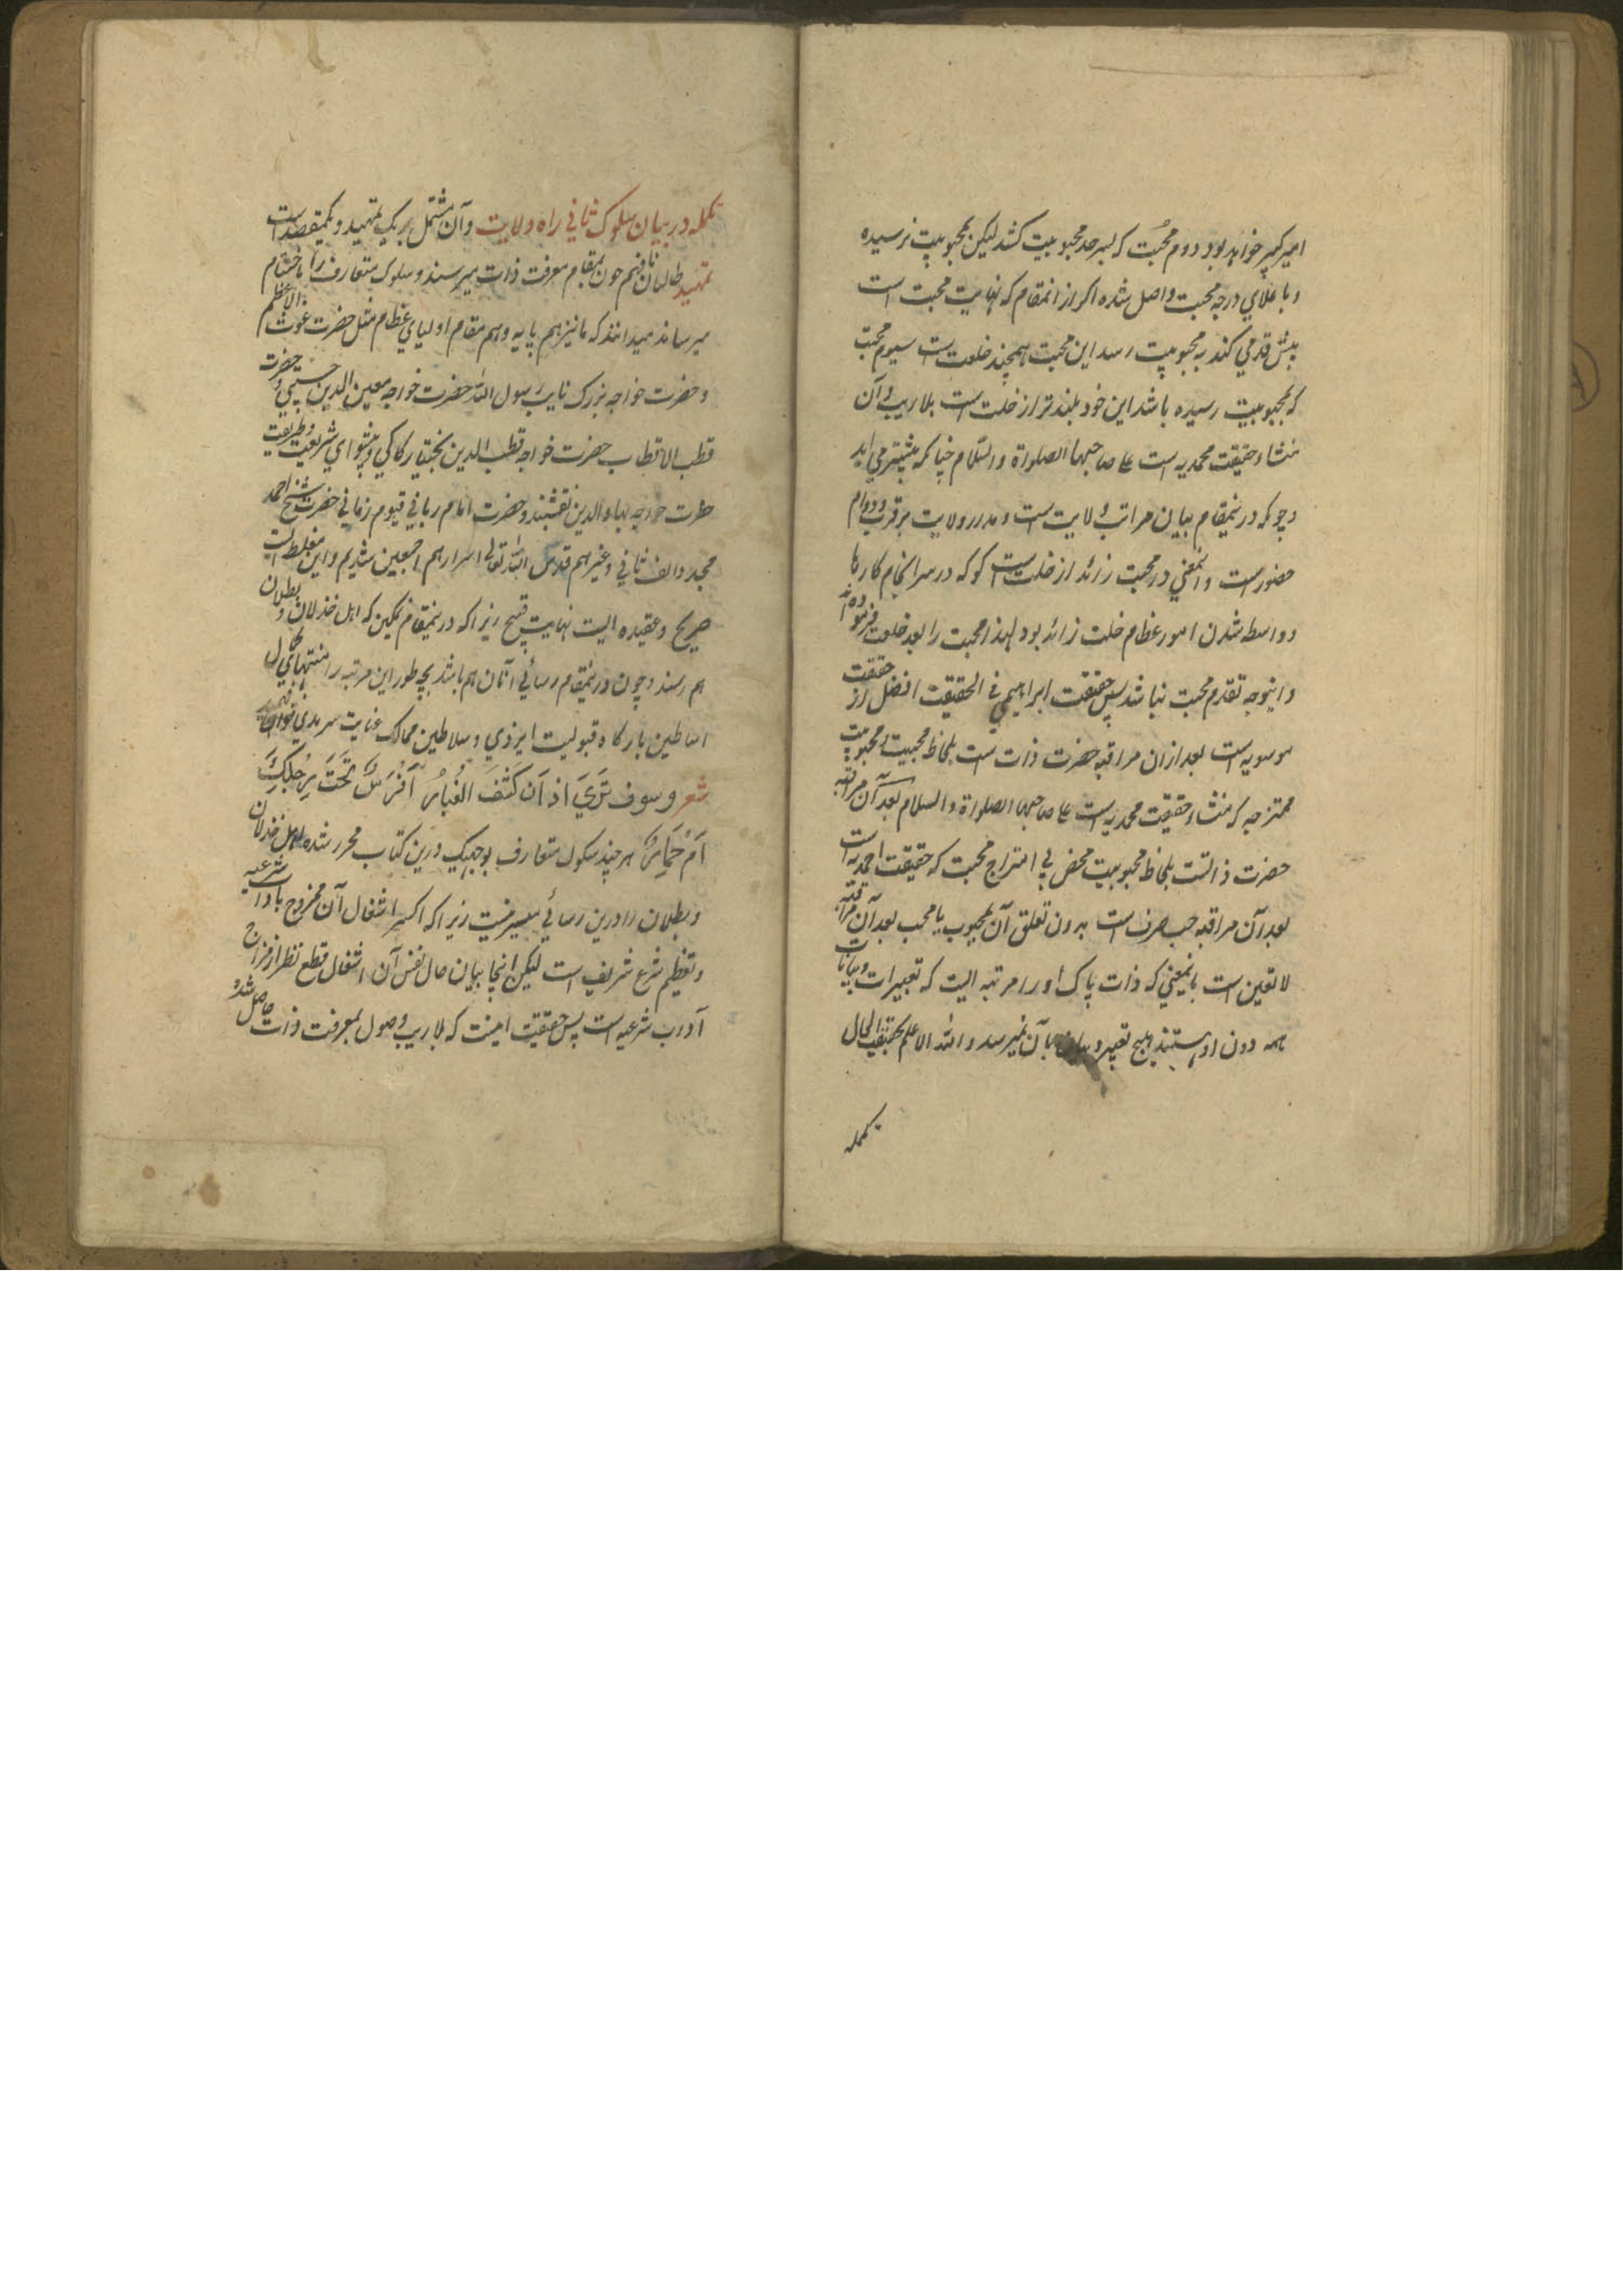 امیر کبیر خواهد بود دوم محبت که بسر حد محبوبیت کشد لیکن بمحبوبیت نرسیده
و باعلای درجه محبت واصل شده اکر از انمقام که نهایت محبت است
پیش قدمی کند به محبوبیت رسد این محبت همچند خلعت است سیوم محبت
که بمحبوبیت رسیده باشد این خود بلند تر از خلت است بلا ریب و آن
منشاء حقیقت محمدیه است علی صاحبها الصلواة والسلام چنانکه پیشتر می آید
و چونکه درینمقام بیان مراتب ولایت است و مدار ولایت بر قرب و دوام
حضور است و انمعنی در محبت زائد از خلت است کو که در سر انجام کارها
و واسطه شدن امور عظام خلت زائد بود لهذا محبت را بعد خلت فرموده اند
و اینوجه تقدم محبت نباشد پس حقیقت ابراهیمی فی الحقیقت افضل از حقیقت
موسویه است بعد ازان مراقبه حضرت ذات است بلحاظ محبیت و محبوبیت
ممتزجه که منشاء حقیقت محمدیه است علی صاحبها الصلواة والسلام بعد آن مراقبه
حضرت ذاتست بلحاظ محبوبیت محض بی امتزاج محبت که حقیقت احمدیه است
بعد آن مراقبه حب صرف است بدون تعلق آن بمحبوب یا محب بعد آن مراقبه
لا تعین است بانمعنی که ذات پاک او را مرتبه ایست که تعبیرات و بیانات
همه دون او هستند هیچ تعبیر و بیان بآن نمیرسد و الله الاعلم بحقیقة الحال
تکمله
تکمله در بیان سلوک ثانی راه ولایت و آن مشتمل بر یک تمهید و یکمقصد است
تمهید طالبان نافهم چون بمقام معرفت ذات میرسند و سلوک متعارف را باختتام
میرسانند میدانند که ما نیز هم پایه و هم مقام اولیای عظام مثل حضرت غوث الاعظم
و حضرت خواجه بزرک نایب رسول الله حضرت خواجه معین الدین حسینی و حضرت
قطب الاقطاب حضرت خواجه قطب الدین بختیار کاکی و پیشوای شریعت و طریقت
حضرت خواجه بهاء الدین نقشبند و حضرت امام ربانی قیوم زمانی حضرت شیخ احمد
مجدد الف ثانی و غیرهم قدس الله تعالی اسرارهم اجمعین شدیم و این مغلطه ایست
صریح و عقیده ایست نهایت قبیح زیرا که درینمقام نمکین که اهل خذلان و بطلان
هم رسند و چون درینمقام رسائی آنان هم باشد بچه طور این مرتبه را منتهای کمال
اساطین بارکاه قبولیت ایزدی و سلاطین ممالک عنایت سرمدی توان فهمید
شعر و سوف تری اذ آن کشف الغبار أفرس تحت رجلک
ام حمار هر چند سکول متعارف بوجهیکه درین کتاب محرر شده اهل خذلان
و بطلان را درین رسائی میسر نیست زیرا که اکثر اشغال آن ممزوج باداب شرعیه
و تعظیم شرع شریف است لیکن اینجا بیان حال نفس آن اشغال قطع نظر از مزاج
آداب شرعیه است پس حقیقت اینست که بلا ریب وصول بمعرفت ذات حاصل شد و